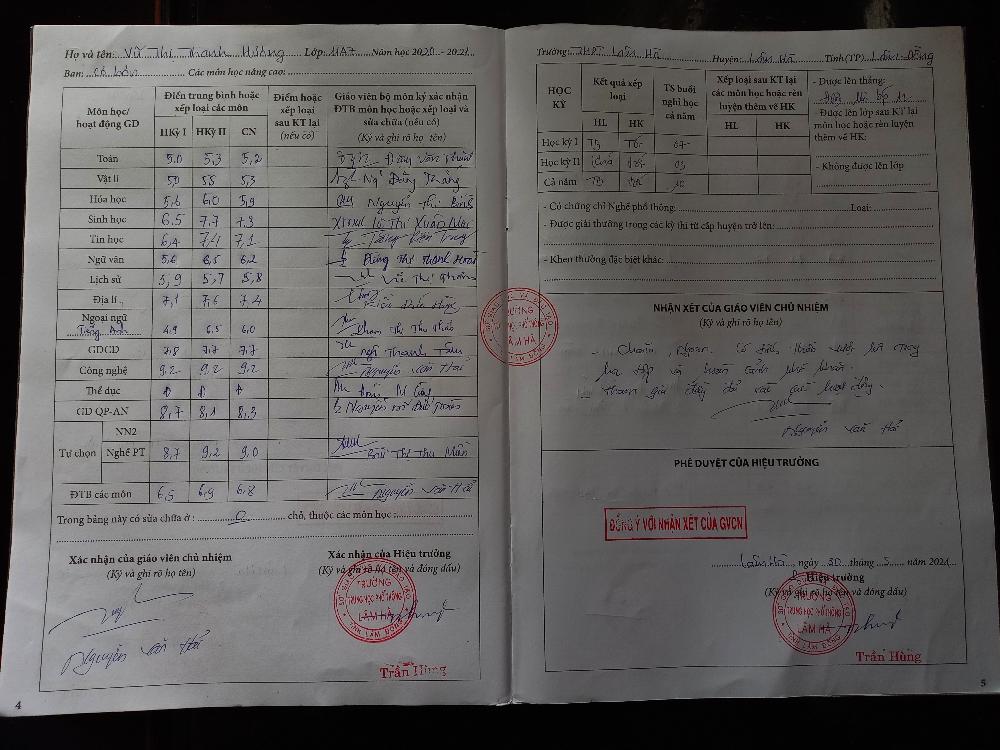 Họ và tên: Vũ Thị Thanh Hương Lớp: 11A7 Năm học 2020 - 2021
Ban: Cơ bản Các môn học nâng cao:
Môn học/ hoạt động GD
Điểm trung bình hoặc xếp loại các môn
HKỳ I HKỳ II CN
Điểm hoặc xếp loại sau KT lại (nếu có)
Giáo viên bộ môn ký xác nhận ĐTB môn học hoặc xếp loại và sửa chữa (nếu có)
(Ký và ghi rõ họ tên)
Toán 5,0 5,3 5,2
Vật lí 5,0 5,5 5,3
Hóa học 5,6 6,0 5,9 Nguyễn Thị
Sinh học 6,5 7,7 7,3 Lê Thị Xuân Mai
Tin học 6,4 7,4 7,1
Ngữ văn 5,6 6,5 6,2 Thị Thanh Hoài
Lịch sử 5,9 5,7 5,8 Vũ Thị
Địa lí 7,1 7,6 7,4
Ngoại ngữ
Tiếng Anh 4,9 6,5 6,0 Phạm Thị Thu Thảo
GDCD 7,8 7,7 7,7 Ngô Thanh Tâm
Công nghệ 9,2 9,2 9,2 Nguyễn Văn Hải
Thể dục Đ Đ Đ
GD QP-AN 8,7 8,1 8,3 Nguyễn
Tự chọn
NN2
Nghề PT 8,7 9,2 9,0 Bùi Thị Thu Hiền
ĐTB các môn 6,5 6,9 6,8 Nguyễn Văn Hải
Trong bảng này có sửa chữa ở : 0 chỗ, thuộc các môn học :
Xác nhận của giáo viên chủ nhiệm
(Ký và ghi rõ họ tên)
Nguyễn Văn Hải
Xác nhận của Hiệu trưởng
(Ký và ghi rõ họ tên và đóng dấu)
TRƯỜNG
TRUNG HỌC PHỔ THÔNG
LÂM HÀ
TỈNH LÂM ĐỒNG
Trần Hùng
4
TRƯỜNG
TRUNG HỌC PHỔ THÔNG
LÂM HÀ
Trường: THPT Lâm Hà Huyện: Lâm Hà Tỉnh (TP) Lâm Đồng
HỌC KỲ
Kết quả xếp loại
HL HK
TS buổi nghỉ học cả năm
Xếp loại sau KT lại các môn học hoặc rèn luyện thêm về HK
HL HK
- Được lên thẳng:
- Được lên lớp sau KT lại môn học hoặc rèn luyện thêm về HK:
- Không được lên lớp
Học kỳ I Tb Tốt 07
Học kỳ II Khá Tốt 03
Cả năm Tb Tốt 10
- Có chứng chỉ Nghề phổ thông: Loại:
- Được giải thưởng trong các kỳ thi từ cấp huyện trở lên:
- Khen thưởng đặc biệt khác:
NHẬN XÉT CỦA GIÁO VIÊN CHỦ NHIỆM
(Ký và ghi rõ họ tên)
- Chăm, ngoan. Có tinh thần vượt khó trong
học tập và hoàn cảnh khó khăn.
- Tham gia đầy đủ các hoạt động.
Nguyễn Văn Hải
PHÊ DUYỆT CỦA HIỆU TRƯỞNG
ĐỒNG Ý VỚI NHẬN XÉT CỦA GVCN
Lâm Hà, ngày 30 tháng 5 năm 2021
Hiệu trưởng
(Ký và ghi rõ họ tên và đóng dấu)
TRƯỜNG
TRUNG HỌC PHỔ THÔNG
LÂM HÀ
TỈNH LÂM ĐỒNG
Trần Hùng
5